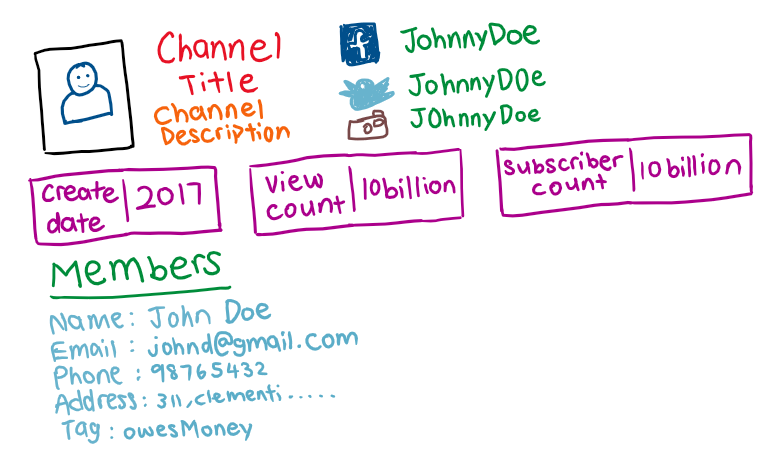 Channel
Title
Channel
Description
f
JohnnyDoe
JohnnyDOe
JOhnnyDoe
create
date
2017
view
count
10billion
subscriber
count
10billion
Members
Name: John Doe
Email : johnd@gmail.com
Phone : 98765432
Address: 311, clementi.....
Tag: owesMoney